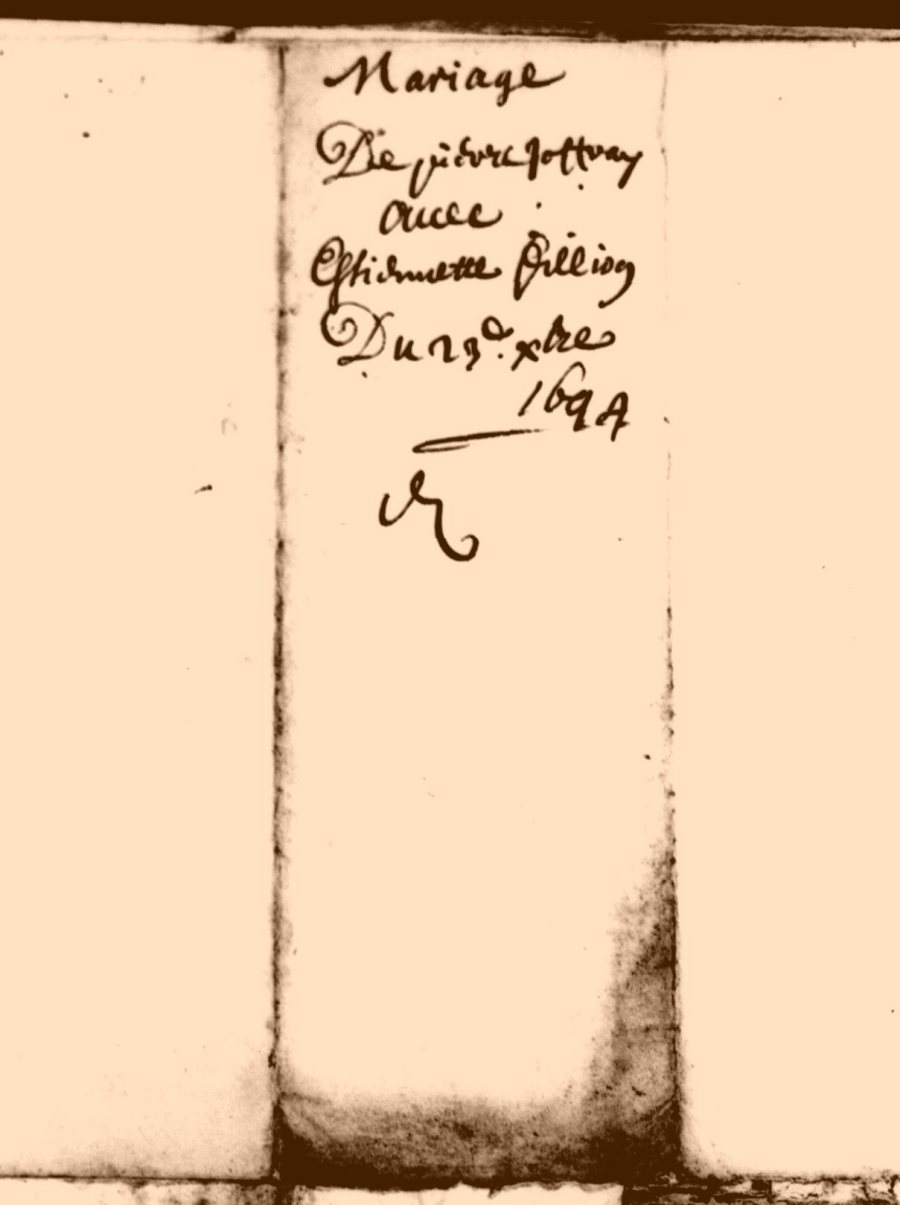 Mariage
De pierre Joffray
avec
Estiennette fillion
Du 23e. xbre
1694